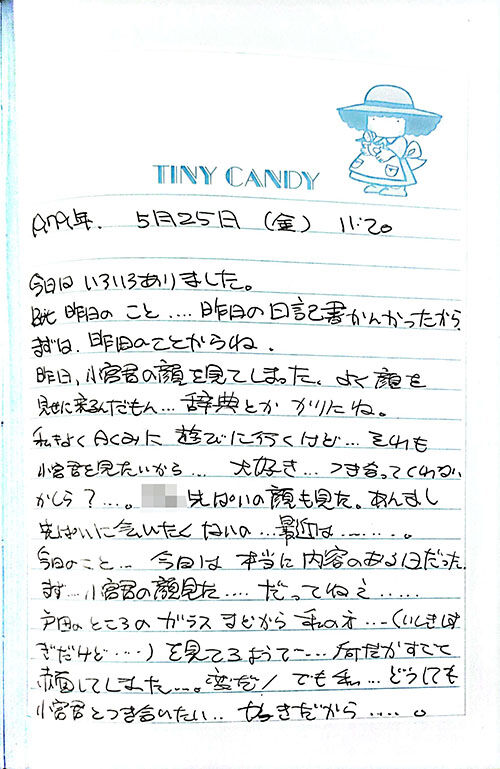 TINY CANDY
年. 5月25日 (金) 11:20
今日は いろいろありました。
昨日の こと .... 昨日の日記書かんかったから
まずは、昨日のことからね。
昨日、小宮君の顔を見てしまった。よく顔を
見せに来るんだもん... 辞典とか かりにね。
私もよく A(くみに 遊びに行くけど... それも
小宮君を見たいから... 大好き... つき合ってくれない
かしら？...。 先ぱいの顔も見た。あんまし
先ぱいに会いたくないの...最近は.......。
今日のこと... 今日は 本当に 内容のある1日だった。
まず... 小宮君の顔見た.... だってねぇ.....
戸田のところの ガラス まどから 私の方...(いしきはす
ぎだけど....)を見てるようでー... 何だかすごく
赤面してしまった...。変だ! でも私...どうしても
小宮君とつき合いたい... 好きだから .....。